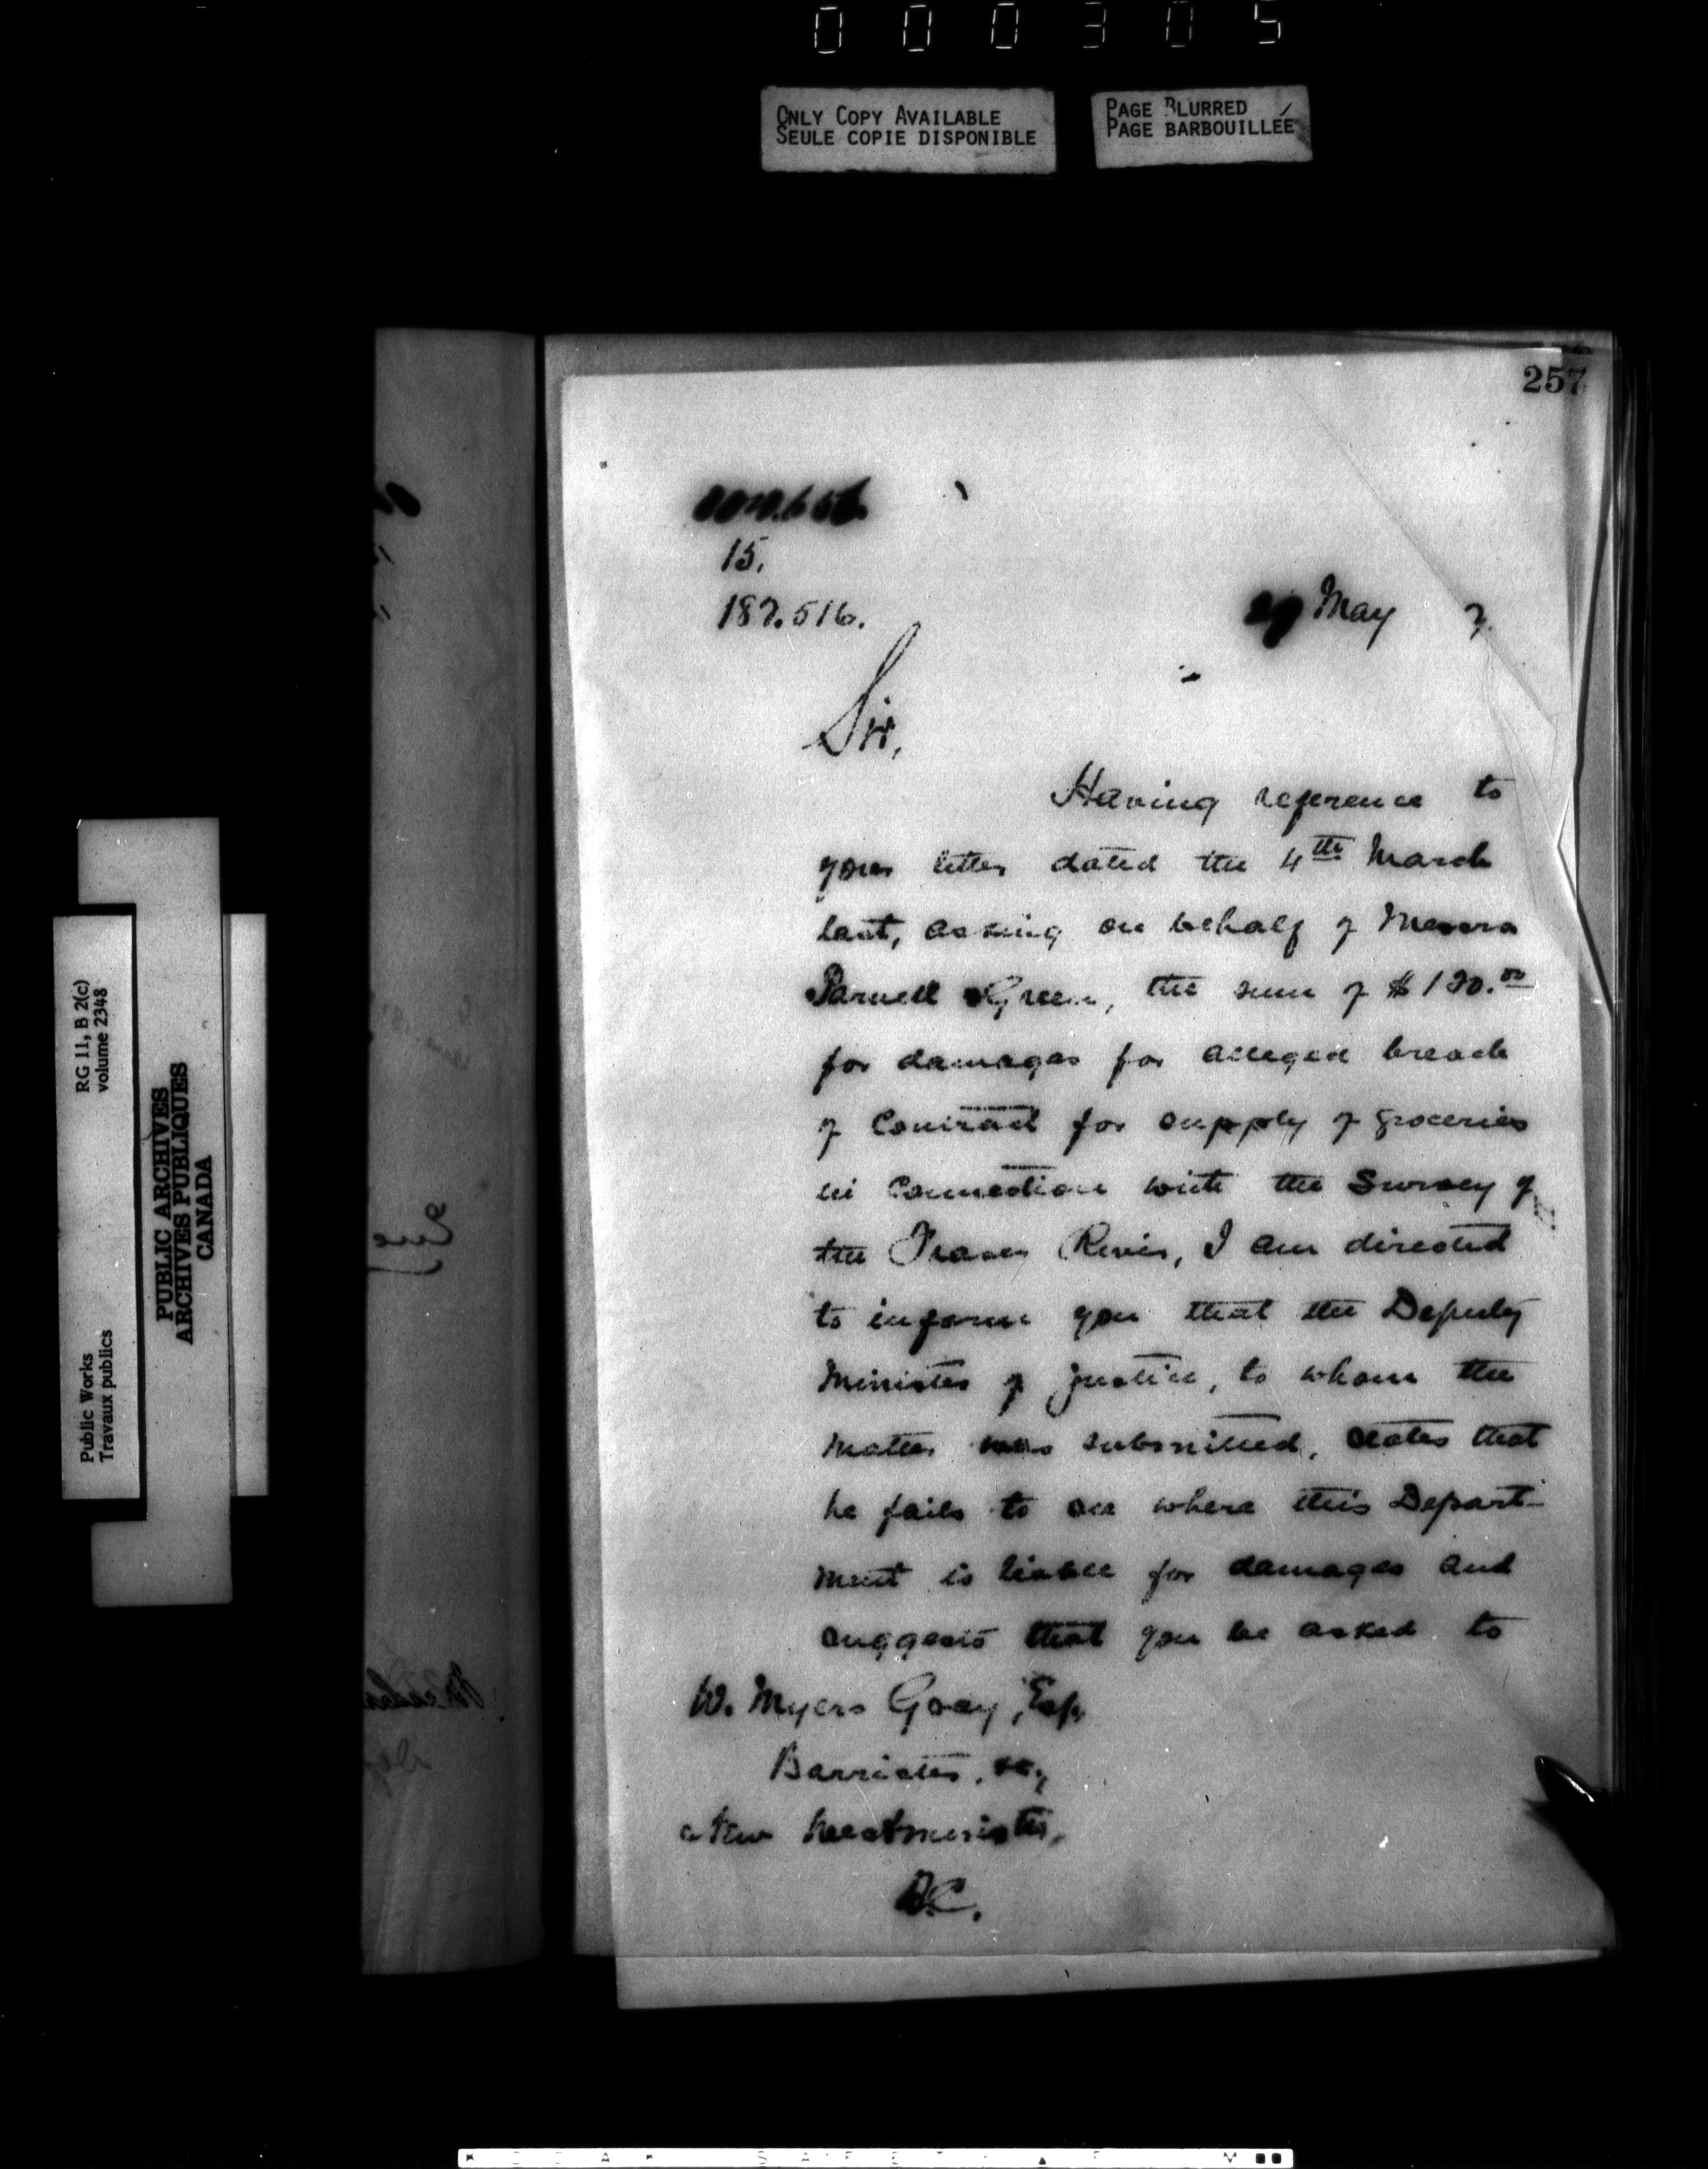 000305
ONLY COPY AVAILABLE
SEULE COPIE DISPONIBLE
PAGE BLURRED
PAGE BARBOUILLÉE
257
15.
187.516.
29 May 7.
Sir,
Having reference to
your letter dated the 4th March
last, asking on behalf of Messrs
Parnell & Green, the sum of $120.00
for damages for alleged breach
of Contract for supply of groceries
in connection with the Survey of
the Fraser River, I am directed
to inform you that the Deputy
Minister of Justice, to whom the
matter was submitted, states that
he fails to see where this Depart-
ment is liable for damages and
suggests that you be asked to
W. Myers Gray, Esq.
Barrister, &c.,
New Westminster,
B.C.
RG 11, B 2(c)
volume 2348
Public Works
Travaux publics
PUBLIC ARCHIVES
ARCHIVES PUBLIQUES
CANADA